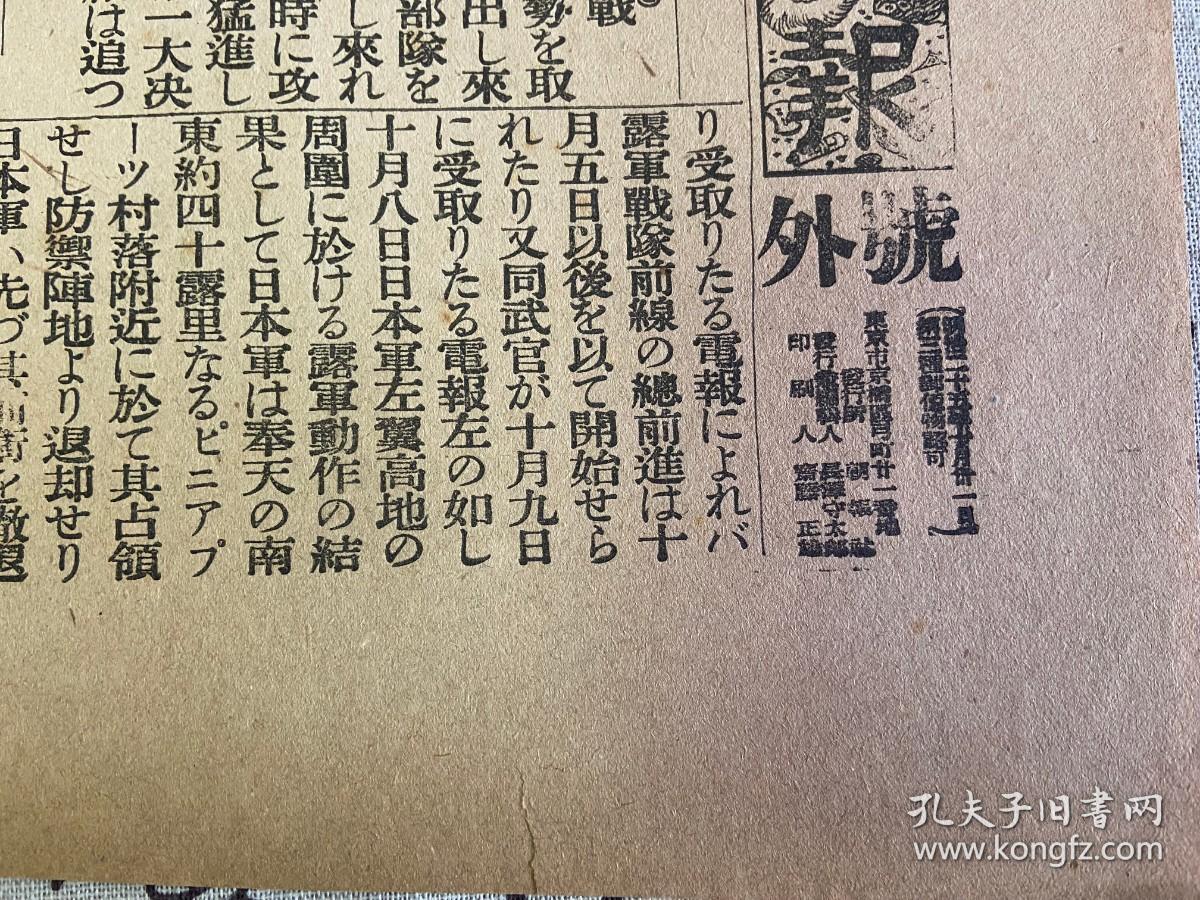 報
號外
東京市京橋區弓町廿一番地
印刷人 齋藤正
戰
勢を取
出し來
部隊を
し來れ
時に攻
猛進し
一大决
は追つ
り受取りたる電報によれバ
露軍戰隊前線の總前進は十
月五日以後を以て開始せら
れたり又同武官が十月九日
に受取りたる電報左の如し
十月八日日本軍左翼高地の
周圍に於ける露軍動作の結
果として日本軍は奉天の南
東約四十露里なるピニアプ
ーツ村落附近に於て其占領
せし防禦陣地より退却せり
日本軍ハ先づ其前衛を撤退
孔夫子旧书网
www.kongfz.com